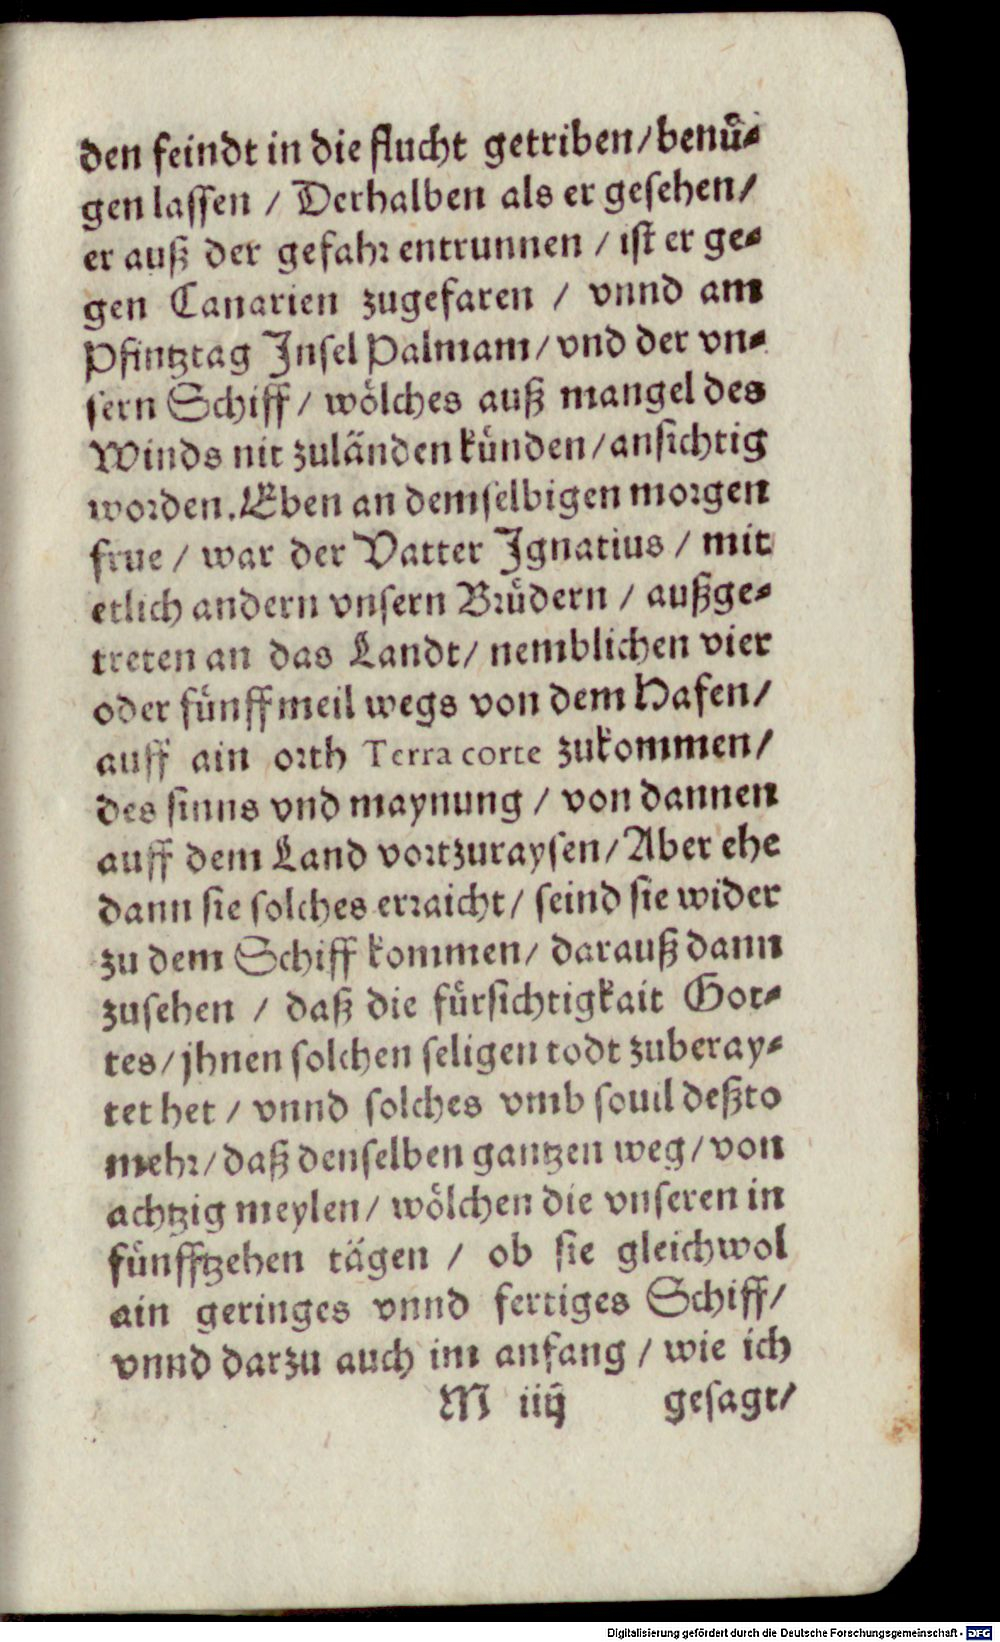 den feindt in die flucht getriben/benuͤ⸗
gen lassen / Derhalben als er gesehen/
er auß der gefahr entrunnen / ist er ge⸗
gen Canarien zugefaren / vnnd am
Pfintztag Insel Palmam/vnd der vn⸗
sern Schiff/ woͤlches auß mangel des
Winds nit zuländen kuͤnden/ansichtig
worden. Eben an demselbigen morgen
frue / war der Vatter Ignatius / mit
etlich andern vnsern Bruͤdern / außge⸗
treten an das Landt/ nemblichen vier
oder fuͤnff meil wegs von dem Hafen/
auff ain orth Terra corte zukommen/
des sinns vnd maynung / von dannen
auff dem Land vortzuraysen/Aber ehe
dann sie solches erraicht/ seind sie wider
zu dem Schiff kommen/ darauß dann
zusehen / daß die fuͤrsichtigkait Got⸗
tes/jhnen solchen seligen todt zuberay⸗
tet het / vnnd solches vmb souil deßto
mehr/daß denselben gantzen weg/von
achtzig meylen/ woͤlchen die vnseren in
fuͤnfftzehen tägen / ob sie gleichwol
ain geringes vnnd fertiges Schiff/
vnnd darzu auch im anfang / wie ich
M iiij gesagt/
Digitalisierung gefördert durch die Deutsche Forschungsgemeinschaft - DFG